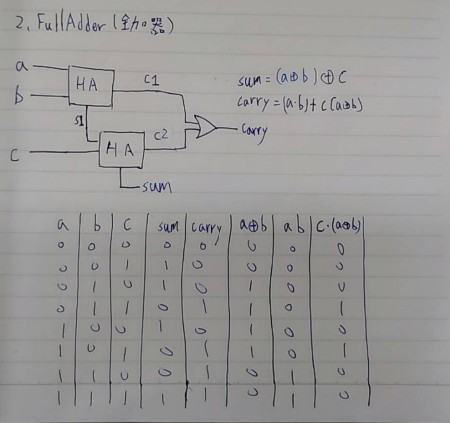 2. FullAdder (全加器)
a
HA
c1
sum = (a⊕b) ⊕ C
b
carry = (a·b) + c(a⊕b)
s1
carry
HA
c2
c
sum
a b C sum carry a⊕b a b C·(a⊕b)
0 0 0 0 0 0 0 0
0 0 1 1 0 0 0 0
0 1 0 1 0 1 0 0
0 1 1 0 1 1 0 1
1 0 0 1 0 1 0 0
1 0 1 0 1 1 0 1
1 1 0 0 1 0 1 0
1 1 1 1 1 0 1 0